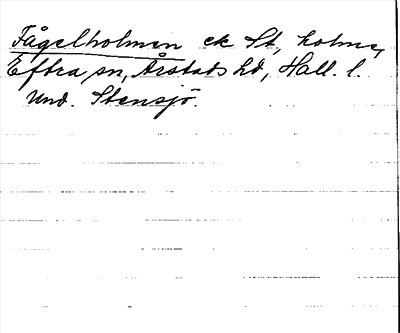 Fågelholmen ek St, holme,
Eftra, sn, Årstads hd, Hall. l.
Und. Stensjö.